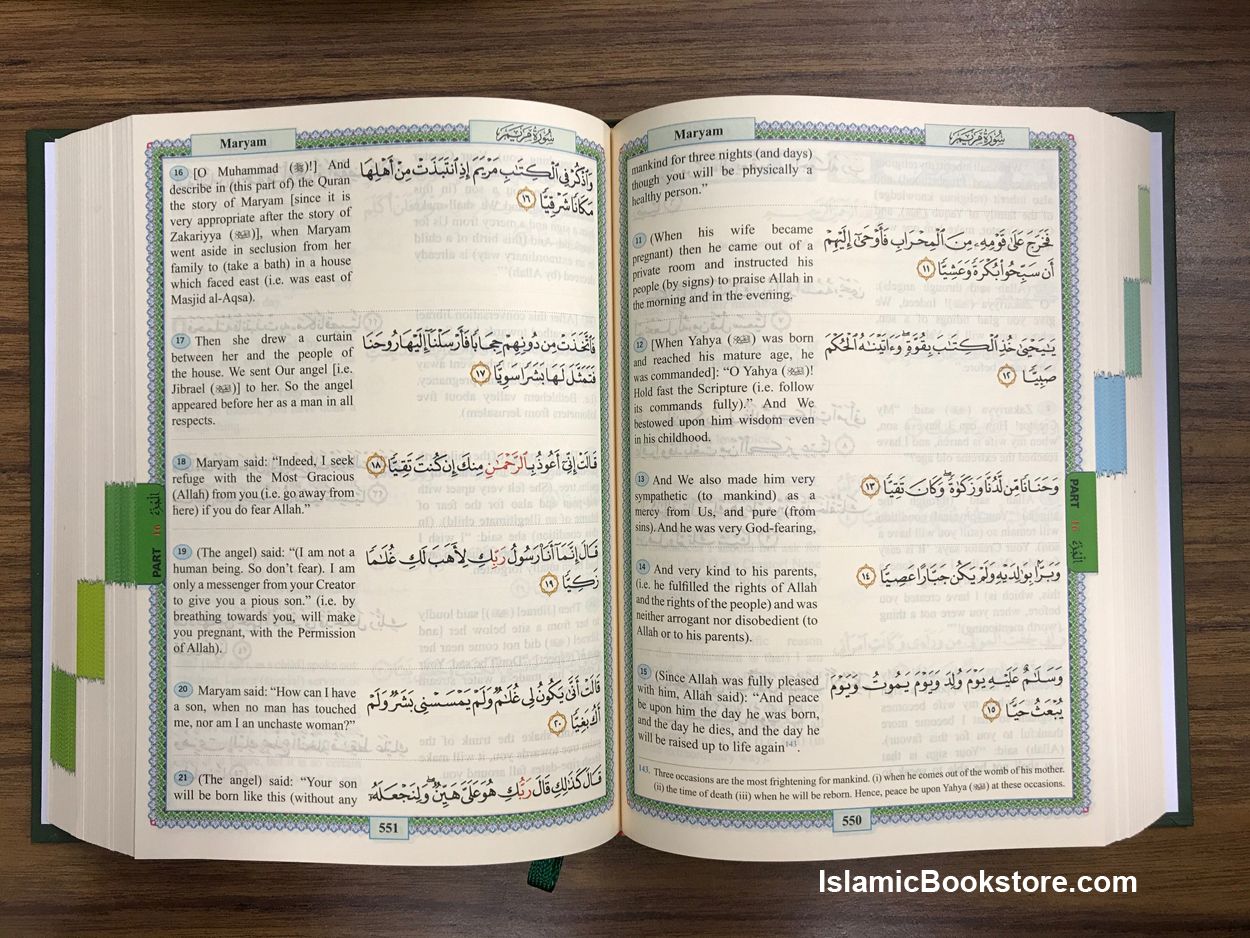 Maryam
سُورَةُ مَرْيَمَ
mankind for three nights (and days)
though you will be physically a
healthy person.”
11 (When his wife became
pregnant) then he came out of a
private room and instructed his
people (by signs) to praise Allah in
the morning and in the evening.
فَخَرَجَ عَلَىٰ قَوْمِهِۦ مِنَ ٱلْمِحْرَابِ فَأَوْحَىٰٓ إِلَيْهِمْ
أَن سَبِّحُوا۟ بُكْرَةً وَعَشِيًّا ١١
12 [When Yahya (عليه السلام) was born
and reached his mature age, he
was commanded]: “O Yahya (عليه السلام)!
Hold fast the Scripture (i.e. follow
its commands fully).” And We
bestowed upon him wisdom even
in his childhood.
يَـٰيَحْيَىٰ خُذِ ٱلْكِتَـٰبَ بِقُوَّةٍ ۖ وَءَاتَيْنَـٰهُ ٱلْحُكْمَ
صَبِيًّا ١٢
13 And We also made him very
sympathetic (to mankind) as a
mercy from Us, and pure (from
sins). And he was very God-fearing,
وَحَنَانًا مِّن لَّدُنَّا وَزَكَوٰةً ۖ وَكَانَ تَقِيًّا ١٣
14 And very kind to his parents,
(i.e. he fulfilled the rights of Allah
and the rights of the people) and was
neither arrogant nor disobedient (to
Allah or to his parents).
وَبَرًّۢا بِوَٰلِدَيْهِ وَلَمْ يَكُن جَبَّارًا عَصِيًّا ١٤
15 (Since Allah was fully pleased
with him, Allah said): “And peace
be upon him the day he was born,
and the day he dies, and the day he
will be raised up to life again143.
وَسَلَـٰمٌ عَلَيْهِ يَوْمَ وُلِدَ وَيَوْمَ يَمُوتُ وَيَوْمَ
يُبْعَثُ حَيًّا ١٥
143. Three occasions are the most frightening for mankind. (i) when he comes out of the womb of his mother.
(ii) the time of death (iii) when he will be reborn. Hence, peace be upon Yahya (عليه السلام) at these occasions.
550
PART 16 الْجُزْءُ
Maryam
سُورَةُ مَرْيَمَ
16 [O Muhammad (ﷺ)!] And
describe in (this part of) the Quran
the story of Maryam [since it is
very appropriate after the story of
Zakariyya (عليه السلام)], when Maryam
went aside in seclusion from her
family to (take a bath) in a house
which faced east (i.e. was east of
Masjid al-Aqsa).
وَٱذْكُرْ فِى ٱلْكِتَـٰبِ مَرْيَمَ إِذِ ٱنتَبَذَتْ مِنْ أَهْلِهَا
مَكَانًا شَرْقِيًّا ١٦
17 Then she drew a curtain
between her and the people of
the house. We sent Our angel [i.e.
Jibrael (عليه السلام)] to her. So the angel
appeared before her as a man in all
respects.
فَٱتَّخَذَتْ مِن دُونِهِمْ حِجَابًا فَأَرْسَلْنَآ إِلَيْهَا رُوحَنَا
فَتَمَثَّلَ لَهَا بَشَرًا سَوِيًّا ١٧
18 Maryam said: “Indeed, I seek
refuge with the Most Gracious
(Allah) from you (i.e. go away from
here) if you do fear Allah.”
قَالَتْ إِنِّىٓ أَعُوذُ بِٱلرَّحْمَـٰنِ مِنكَ إِن كُنتَ تَقِيًّا ١٨
19 (The angel) said: “(I am not a
human being. So don’t fear). I am
only a messenger from your Creator
to give you a pious son.” (i.e. by
breathing towards you, will make
you pregnant, with the Permission
of Allah).
قَالَ إِنَّمَآ أَنَا۠ رَسُولُ رَبِّكِ لِأَهَبَ لَكِ غُلَـٰمًا
زَكِيًّا ١٩
20 Maryam said: “How can I have
a son, when no man has touched
me, nor am I an unchaste woman?”
قَالَتْ أَنَّىٰ يَكُونُ لِى غُلَـٰمٌ وَلَمْ يَمْسَسْنِى بَشَرٌ وَلَمْ
أَكُ بَغِيًّا ٢٠
21 (The angel) said: “Your son
will be born like this (without any
قَالَ كَذَٰلِكِ قَالَ رَبُّكِ هُوَ عَلَىَّ هَيِّنٌ ۖ وَلِنَجْعَلَهُۥٓ
551
PART 16 الْجُزْءُ
IslamicBookstore.com